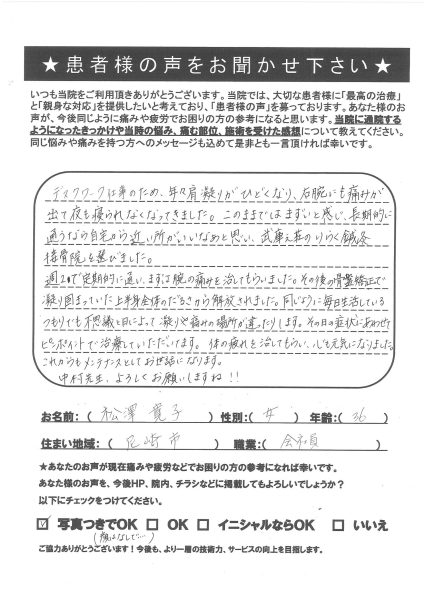 ★患者様の声をお聞かせ下さい★
いつも当院をご利用頂きありがとうございます。当院では、大切な患者様に「最高の治療」
と「親身な対応」を提供したいと考えており、「患者様の声」を募っております。あなた様のお
声が、今後同じように痛みや疲労でお困りの方の参考になると思います。当院に通院する
ようになったきっかけや当時の悩み、痛む部位、施術を受けた感想について教えてください。
同じ悩みや痛みを持つ方へのメッセージも込めて是非とも一言頂ければ幸いです。
デスクワーク仕事のため、年々肩凝りがひどくなり、右腕にも痛みが
出て夜も寝られなくなってきました。このままではまずいと感じ、長期的に
通うなら自宅から近い所がいいなあと思い、武庫之荘のりらく鍼灸
接骨院を選びました。
週2で定期的に通い、まずは腕の痛みを治してもらいました。その後の骨盤矯正で
凝り固まっていた上半身全体のだるさから解放されました。同じように毎日生活している
つもりでも不思議と日によって凝りや痛みの場所が違ったりします。その日の症状にあわせて
ピンポイントで治療していただいてます。体の疲れを治してもらい、心も元気になりました。
これからもメンテナンスとしてお世話になります。
中村先生、よろしくお願いしますね!!
お名前:( 松澤 寛子 ) 性別:( 女 ) 年齢:( 36 )
住まい地域:( 尼崎市 ) 職業:( 会社員 )
★あなたのお声が現在痛みや疲労などでお困りの方の参考になれば幸いです。
あなた様のお声を、今後HP、院内、チラシなどに掲載してもよろしいでしょうか?
以下にチェックをつけてください。
☑ 写真つきでOK □ OK □ イニシャルならOK □ いいえ
(顔はなしで…)
ご協力ありがとうございます!今後も、より一層の技術力、サービスの向上を目指します。